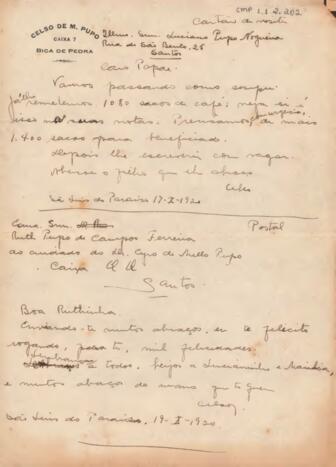 CMP 1.1.2.202
CELSO DE M. PUPO
CAIXA 7
BICA DE PEDRA
Cartão de visita
Illmo. Snr. Luciano Pupo Nogueira
Rua de São Bento, 25
Santos
Caro Papae.
Vamos passando como sempre.
já lhe remettemos 1080 saccos de café; veja si é
isso suas notas. Precisamos de mais
1.400 saccos para beneficiado.
Depois lhe escreverei com vagar.
Abença o filho que lhe abraça
Celso
São Luis do Paraiso 17-X-1920
Exma. Snra. Postal
Ruth Pupo de Campos Ferreira
ao cuidado do Dr. Cyro de Mello Pupo
Caixa
Santos.
Boa Ruthinha
Enviando-te muitos abraços, eu te felicito
rogando, para ti, mil felicidades.
Lembranças a todos, beijos a Lucianinho e
e muitos abraços do mano que te quer
Celso.
São Luis do Paraiso, 19-X-1920